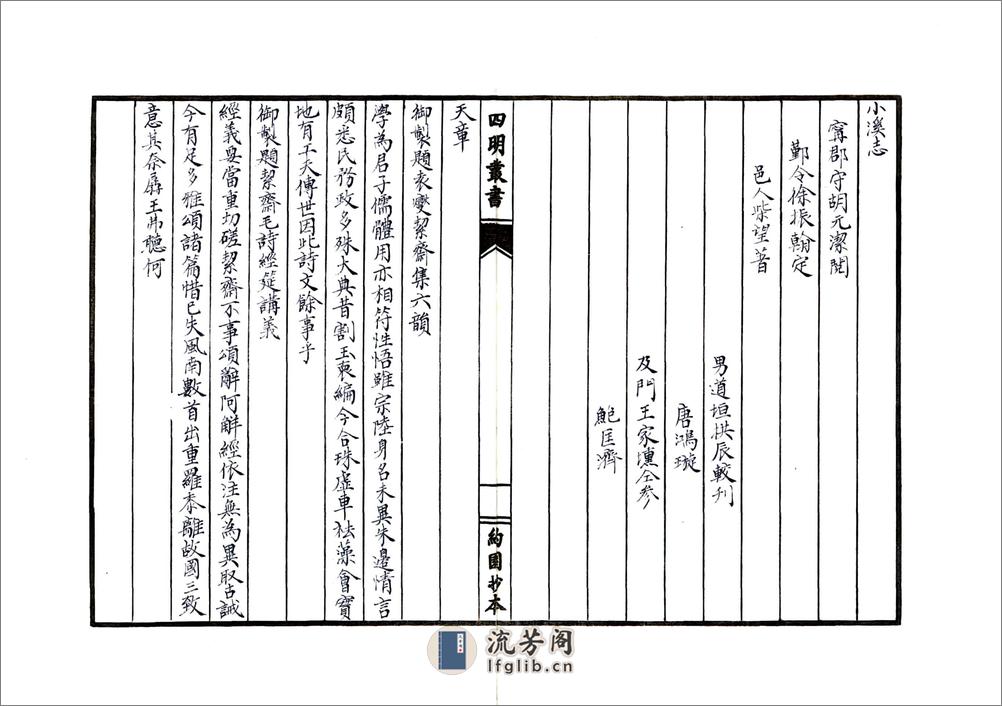 小溪志
寗郡守胡元潔閱
鄞令徐振翰定
邑人柴望著
男道垣拱辰較刋
唐鴻璇
及門王家壎仝參
鮑匡濟
四明叢書
約園抄本
天章
御製題袁燮絜齋集六韻
學為君子儒體用亦相符性悟雖宗陸身名未異朱邊情言
頗悉民務政多殊大典昔割玉裒編今合珠虛車祛藻會寳
地有于天傳世因此詩文餘事乎
御製題絜齋毛詩經筵講義
經義毋當重切磋絜齋不事頌辭阿解經依注無為異取古誡
今有足多雅頌諸篇惜已失風南數首出重羅黍離故國三致
意其奈孱王弗聽何
流芳阁
lfglib.cn